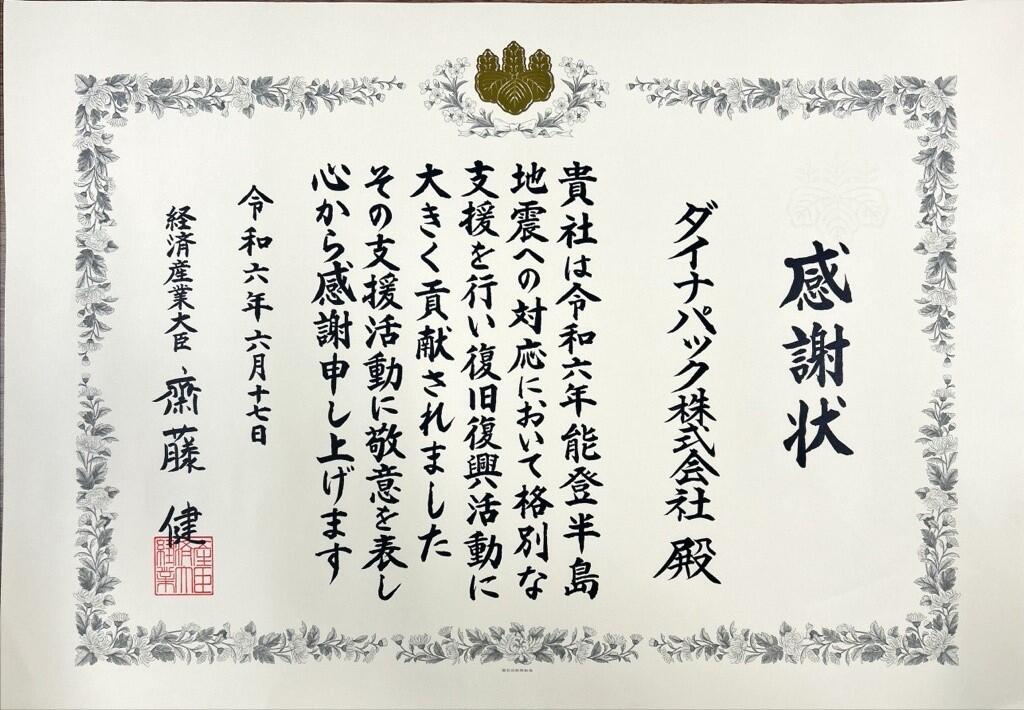 感謝状
ダイナパック株式会社 殿
貴社は令和六年能登半島
地震への対応において格別な
支援を行い復旧復興活動に
大きく貢献されました
その支援活動に敬意を表し
心から感謝申し上げます
令和六年六月十七日
経済産業大臣 齋藤 健